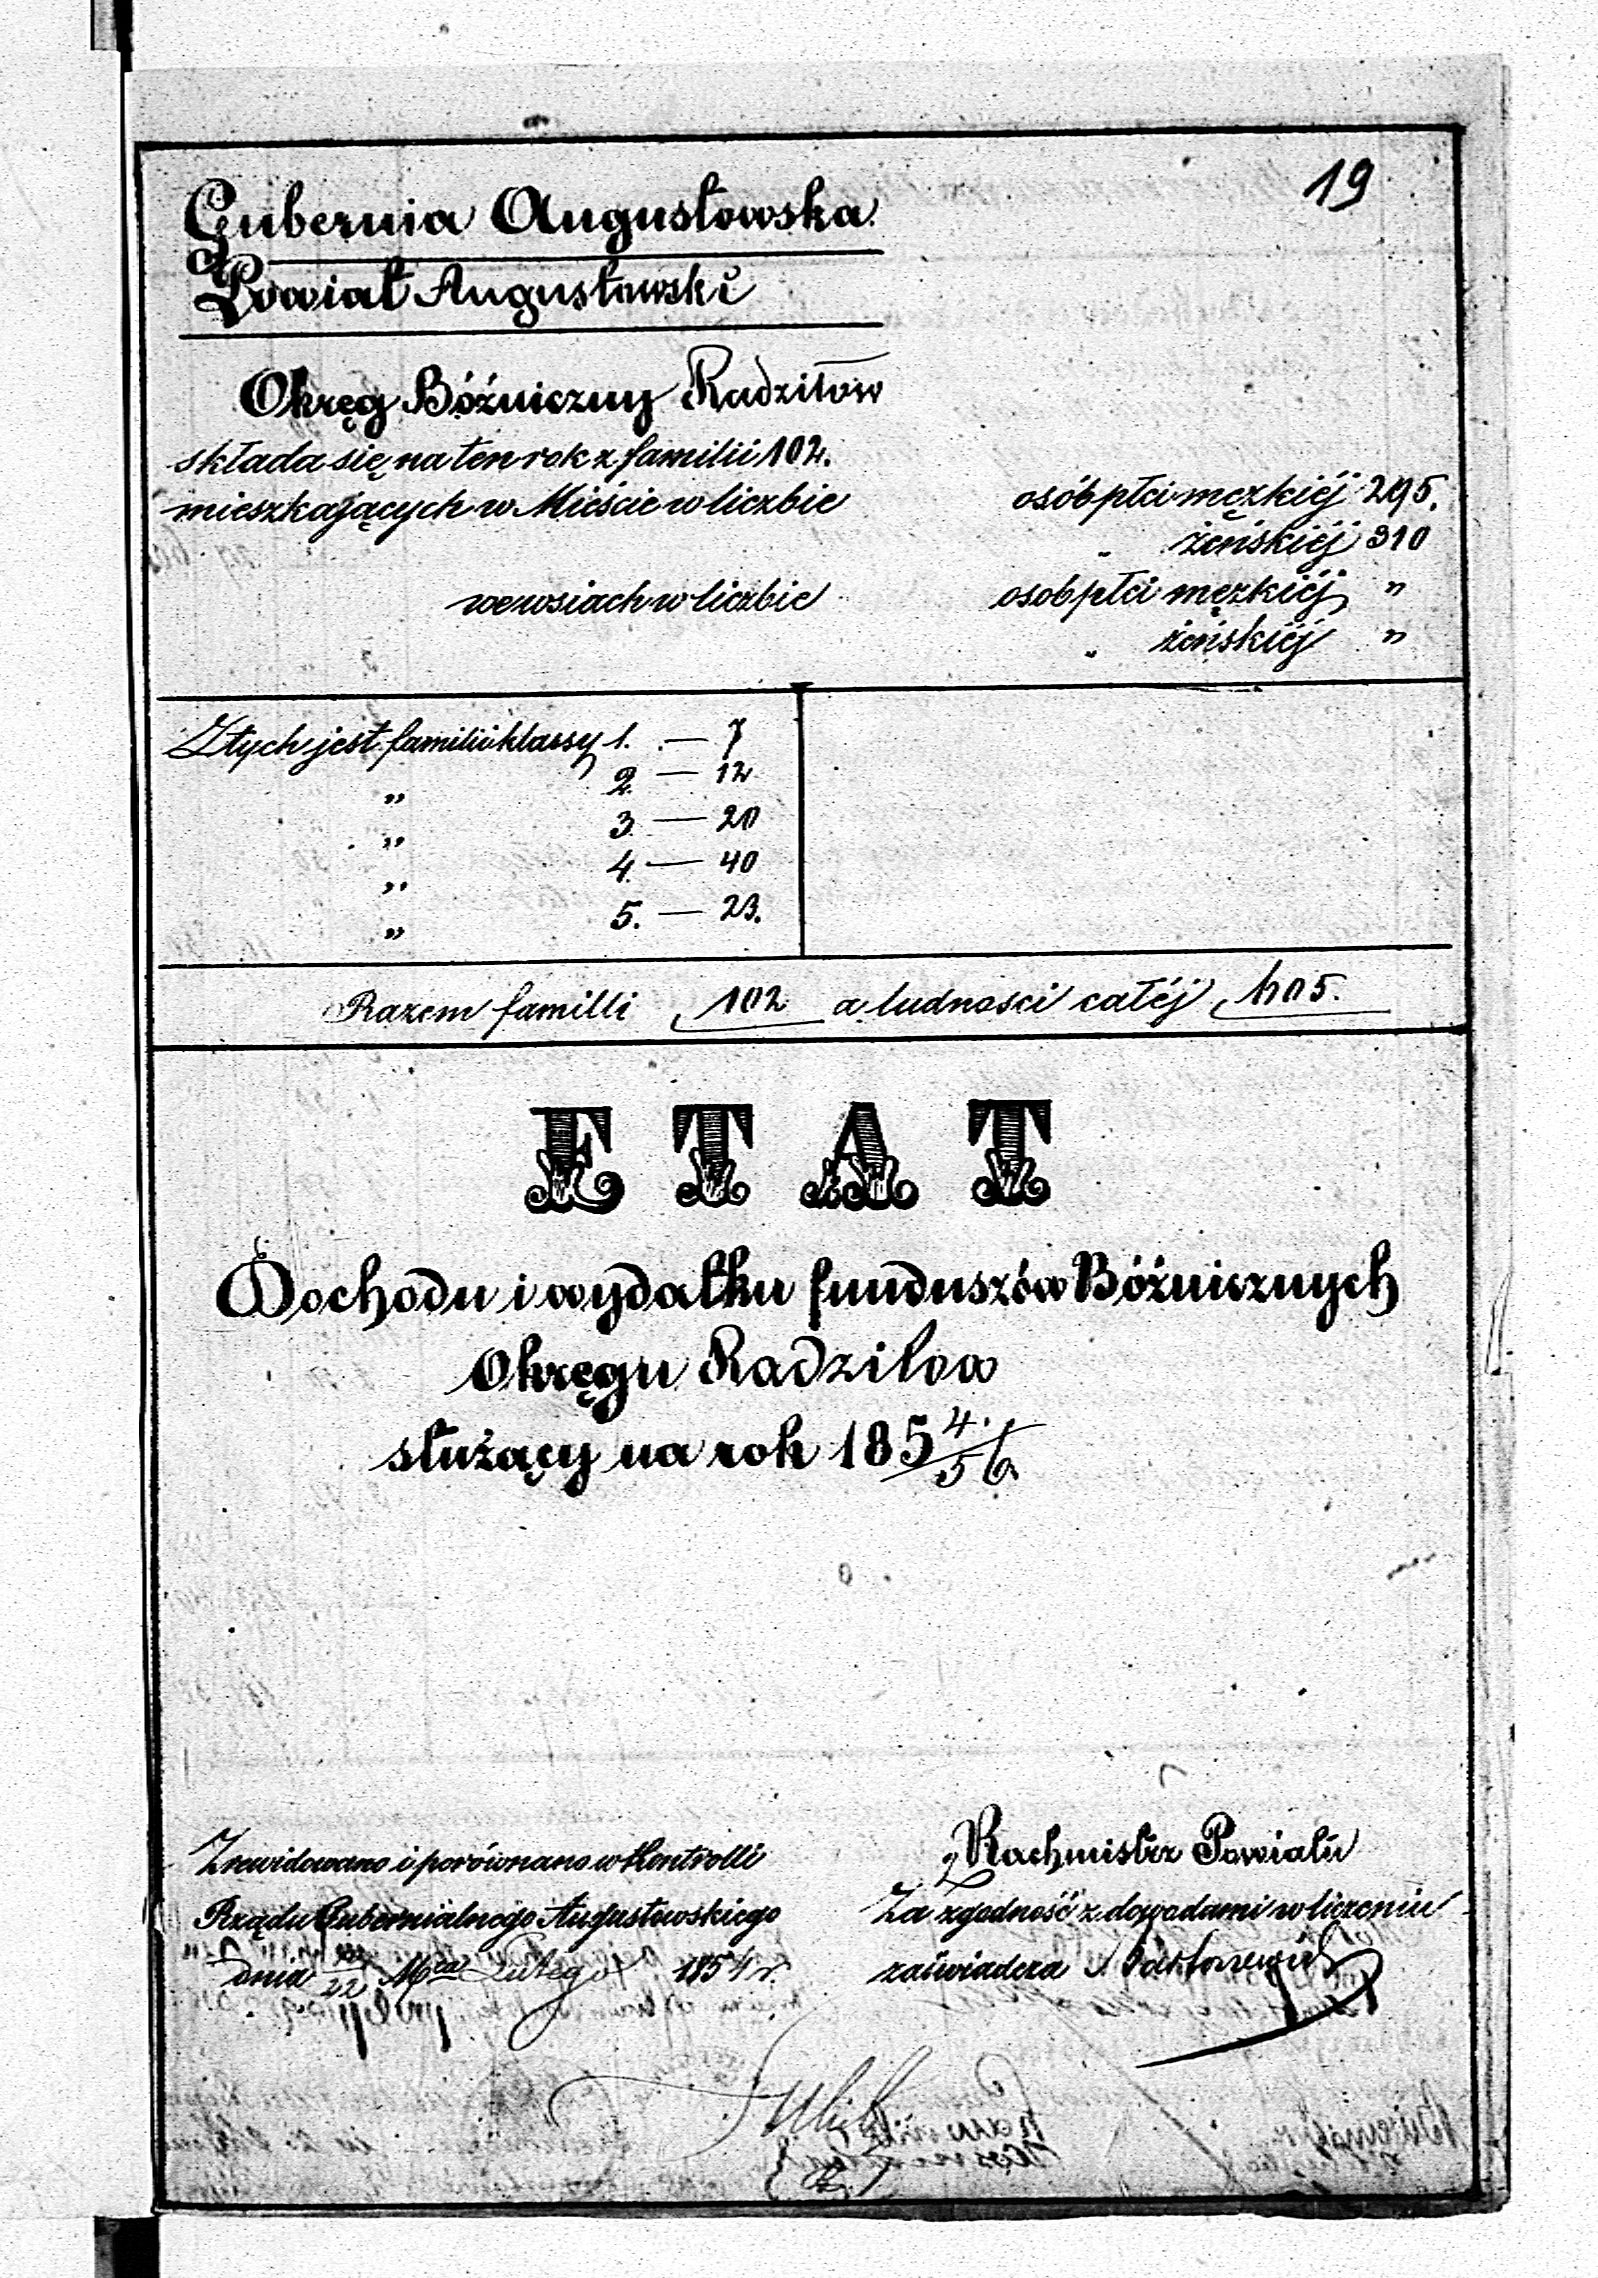 19
Gubernia Augustowska
Powiat Augustowski
Okręg Bóźniczny Radziłow
składa się na ten rok z familii 102.
mieszkających w Mieście w liczbie osób płci męzkiéj 295.
„ żeńskiéj 310
we wsiach w liczbie osob płci męzkiéj „
„ żeńskiéj „
Z tych jest familii klassy 1. — 7
„ 2. — 12
„ 3. — 20
„ 4. — 40
„ 5. — 23.
Razem familli 102 a ludnosci całéj 605.
ETAT
Dochodu i wydatku funduszów Bóźnicznych
Okręgu Radzilow
służący na rok 185 4/56
Zrewidowano i porównano w Kontrolli
Rządu Gubernialnego Augustowskiego
dnia /22 Mca Lutego 1854 r.
Rachmistrz Powiatu
Za zgodność z dowodami w liczeniu
zaświadcza